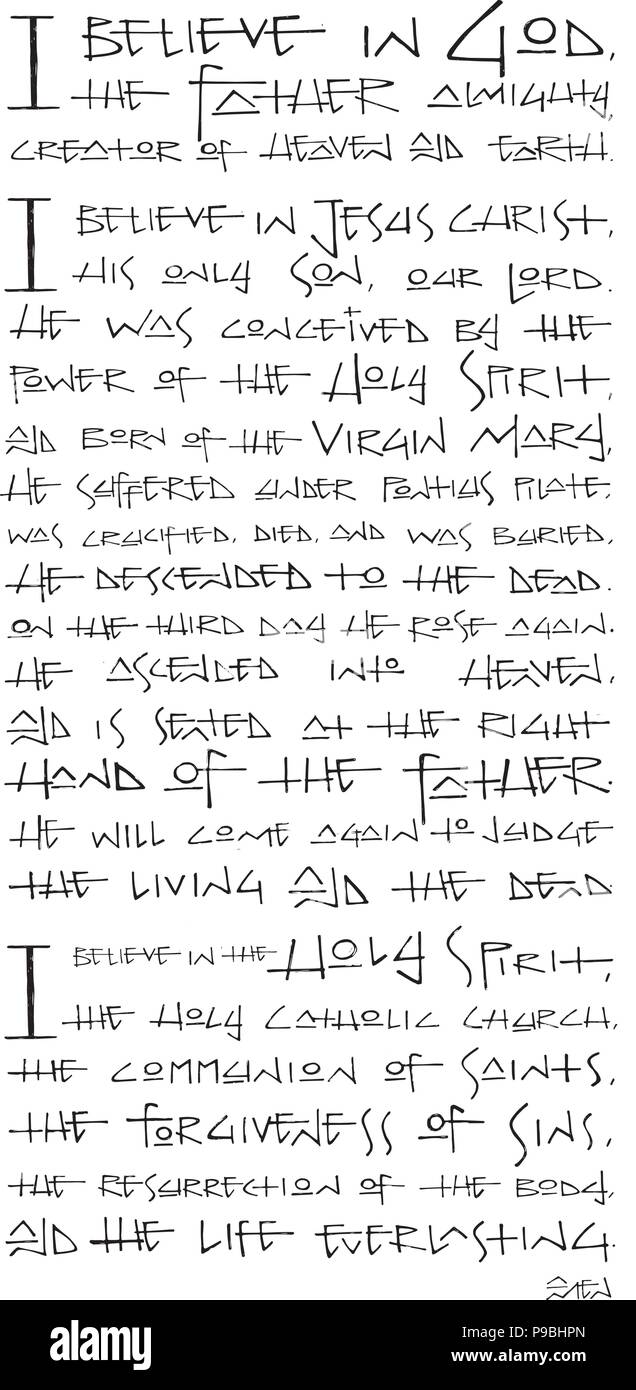 I BELIEVE IN GOD,
THE FATHER ALMIGHTY,
CREATOR OF HEAVEN AND EARTH.
I BELIEVE IN JESUS CHRIST,
HIS ONLY SON, OUR LORD.
HE WAS CONCEIVED BY THE
POWER OF THE HOLY SPIRIT,
AND BORN OF THE VIRGIN MARY,
HE SUFFERED UNDER PONTIUS PILATE,
WAS CRUCIFIED, DIED, AND WAS BURIED.
HE DESCENDED TO THE DEAD.
ON THE THIRD DAY HE ROSE AGAIN.
HE ASCENDED INTO HEAVEN,
AND IS SEATED AT THE RIGHT
HAND OF THE FATHER.
HE WILL COME AGAIN TO JUDGE
THE LIVING AND THE DEAD.
I BELIEVE IN THE HOLY SPIRIT,
THE HOLY CATHOLIC CHURCH,
THE COMMUNION OF SAINTS,
THE FORGIVENESS OF SINS,
THE RESURRECTION OF THE BODY,
AND THE LIFE EVERLASTING.
AMEN
alamy
Image ID: P9BHPN
www.alamy.com